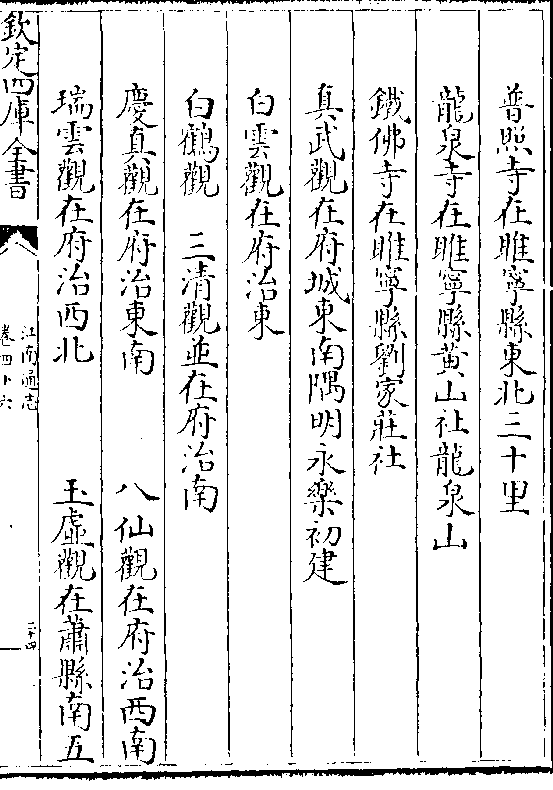 普照寺在睢寧縣東北三十里
龍泉寺在睢寧縣黄山社龍泉山
鐵佛寺在睢寧縣劉家莊社
真武觀在府城東南隅明永樂初建
白雲觀在府治東
白鶴觀　三清觀並在府治南
慶真觀在府治東南　八仙觀在府治西南
瑞雲觀在府治西北　玉虚觀在蕭縣南五
欽定四庫全書
江南通志
卷四十六
二十四